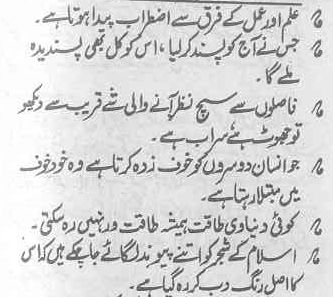 علم اور عمل کے فرق سے اضطراب پیدا ہوتا ہے۔
جس نے آج کو پسند کر لیا، اس کو کل بھی پسندیدہ
ملے گا۔
فاصلوں سے سچ نظر آنے والی شے قریب سے دیکھو
تو جھوٹ ہے سراب ہے۔
جو انسان دوسروں کو خوف زدہ کرتا ہے وہ خود خوف
میں مبتلا رہتا ہے۔
کوئی دنیاوی طاقت ہمیشہ طاقت ور نہیں رہ سکتی۔
اسلام کے شجر کو اتنے پیوند لگائے جا چکے ہیں کہ اس
کا اصل رنگ دب کر رہ گیا ہے۔